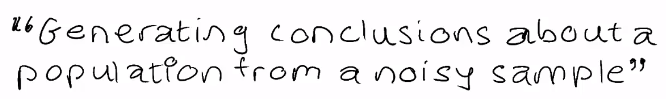 "Generating conclusions about a
population from a noisy sample"